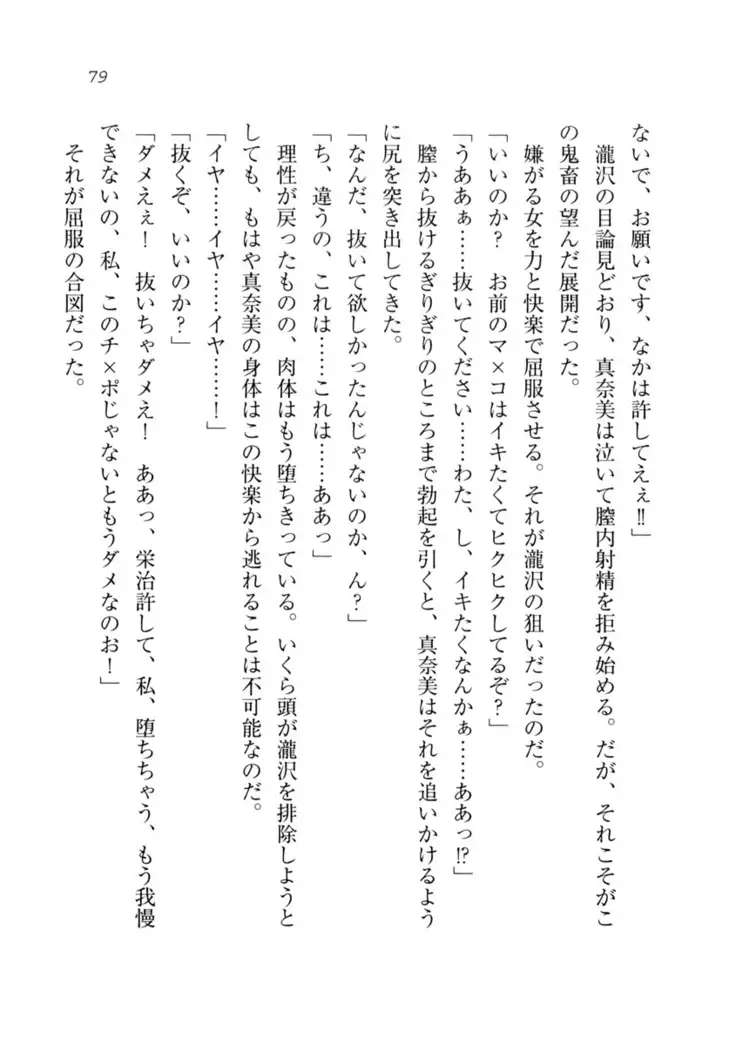 79
ないで、お願いです、なかは許してえぇ!!」
瀧沢の目論見どおり、真奈美は泣いて膣内射精を拒み始める。だが、それこそがこ
の鬼畜の望んだ展開だった。
嫌がる女を力と快楽で屈服させる。それが瀧沢の狙いだったのだ。
「いいのか？　お前のマ×コはイキたくてヒクヒクしてるぞ？」
「うああぁ……抜いてください……わた、し、イキたくなんかぁ……ああっ!?」
膣から抜けるぎりぎりのところまで勃起を引くと、真奈美はそれを追いかけるよう
に尻を突き出してきた。
「なんだ、抜いて欲しかったんじゃないのか、ん？」
「ち、違うの、これは……これは……ああっ」
理性が戻ったものの、肉体はもう堕ちきっている。いくら頭が瀧沢を排除しようと
しても、もはや真奈美の身体はこの快楽から逃れることは不可能なのだ。
「イヤ……イヤ……イヤ……！」
「抜くぞ、いいのか？」
「ダメえぇ！　抜いちゃダメえ！　ああっ、栄治許して、私、堕ちちゃう、もう我慢
できないの、私、このチ×ポじゃないともうダメなのお！」
それが屈服の合図だった。